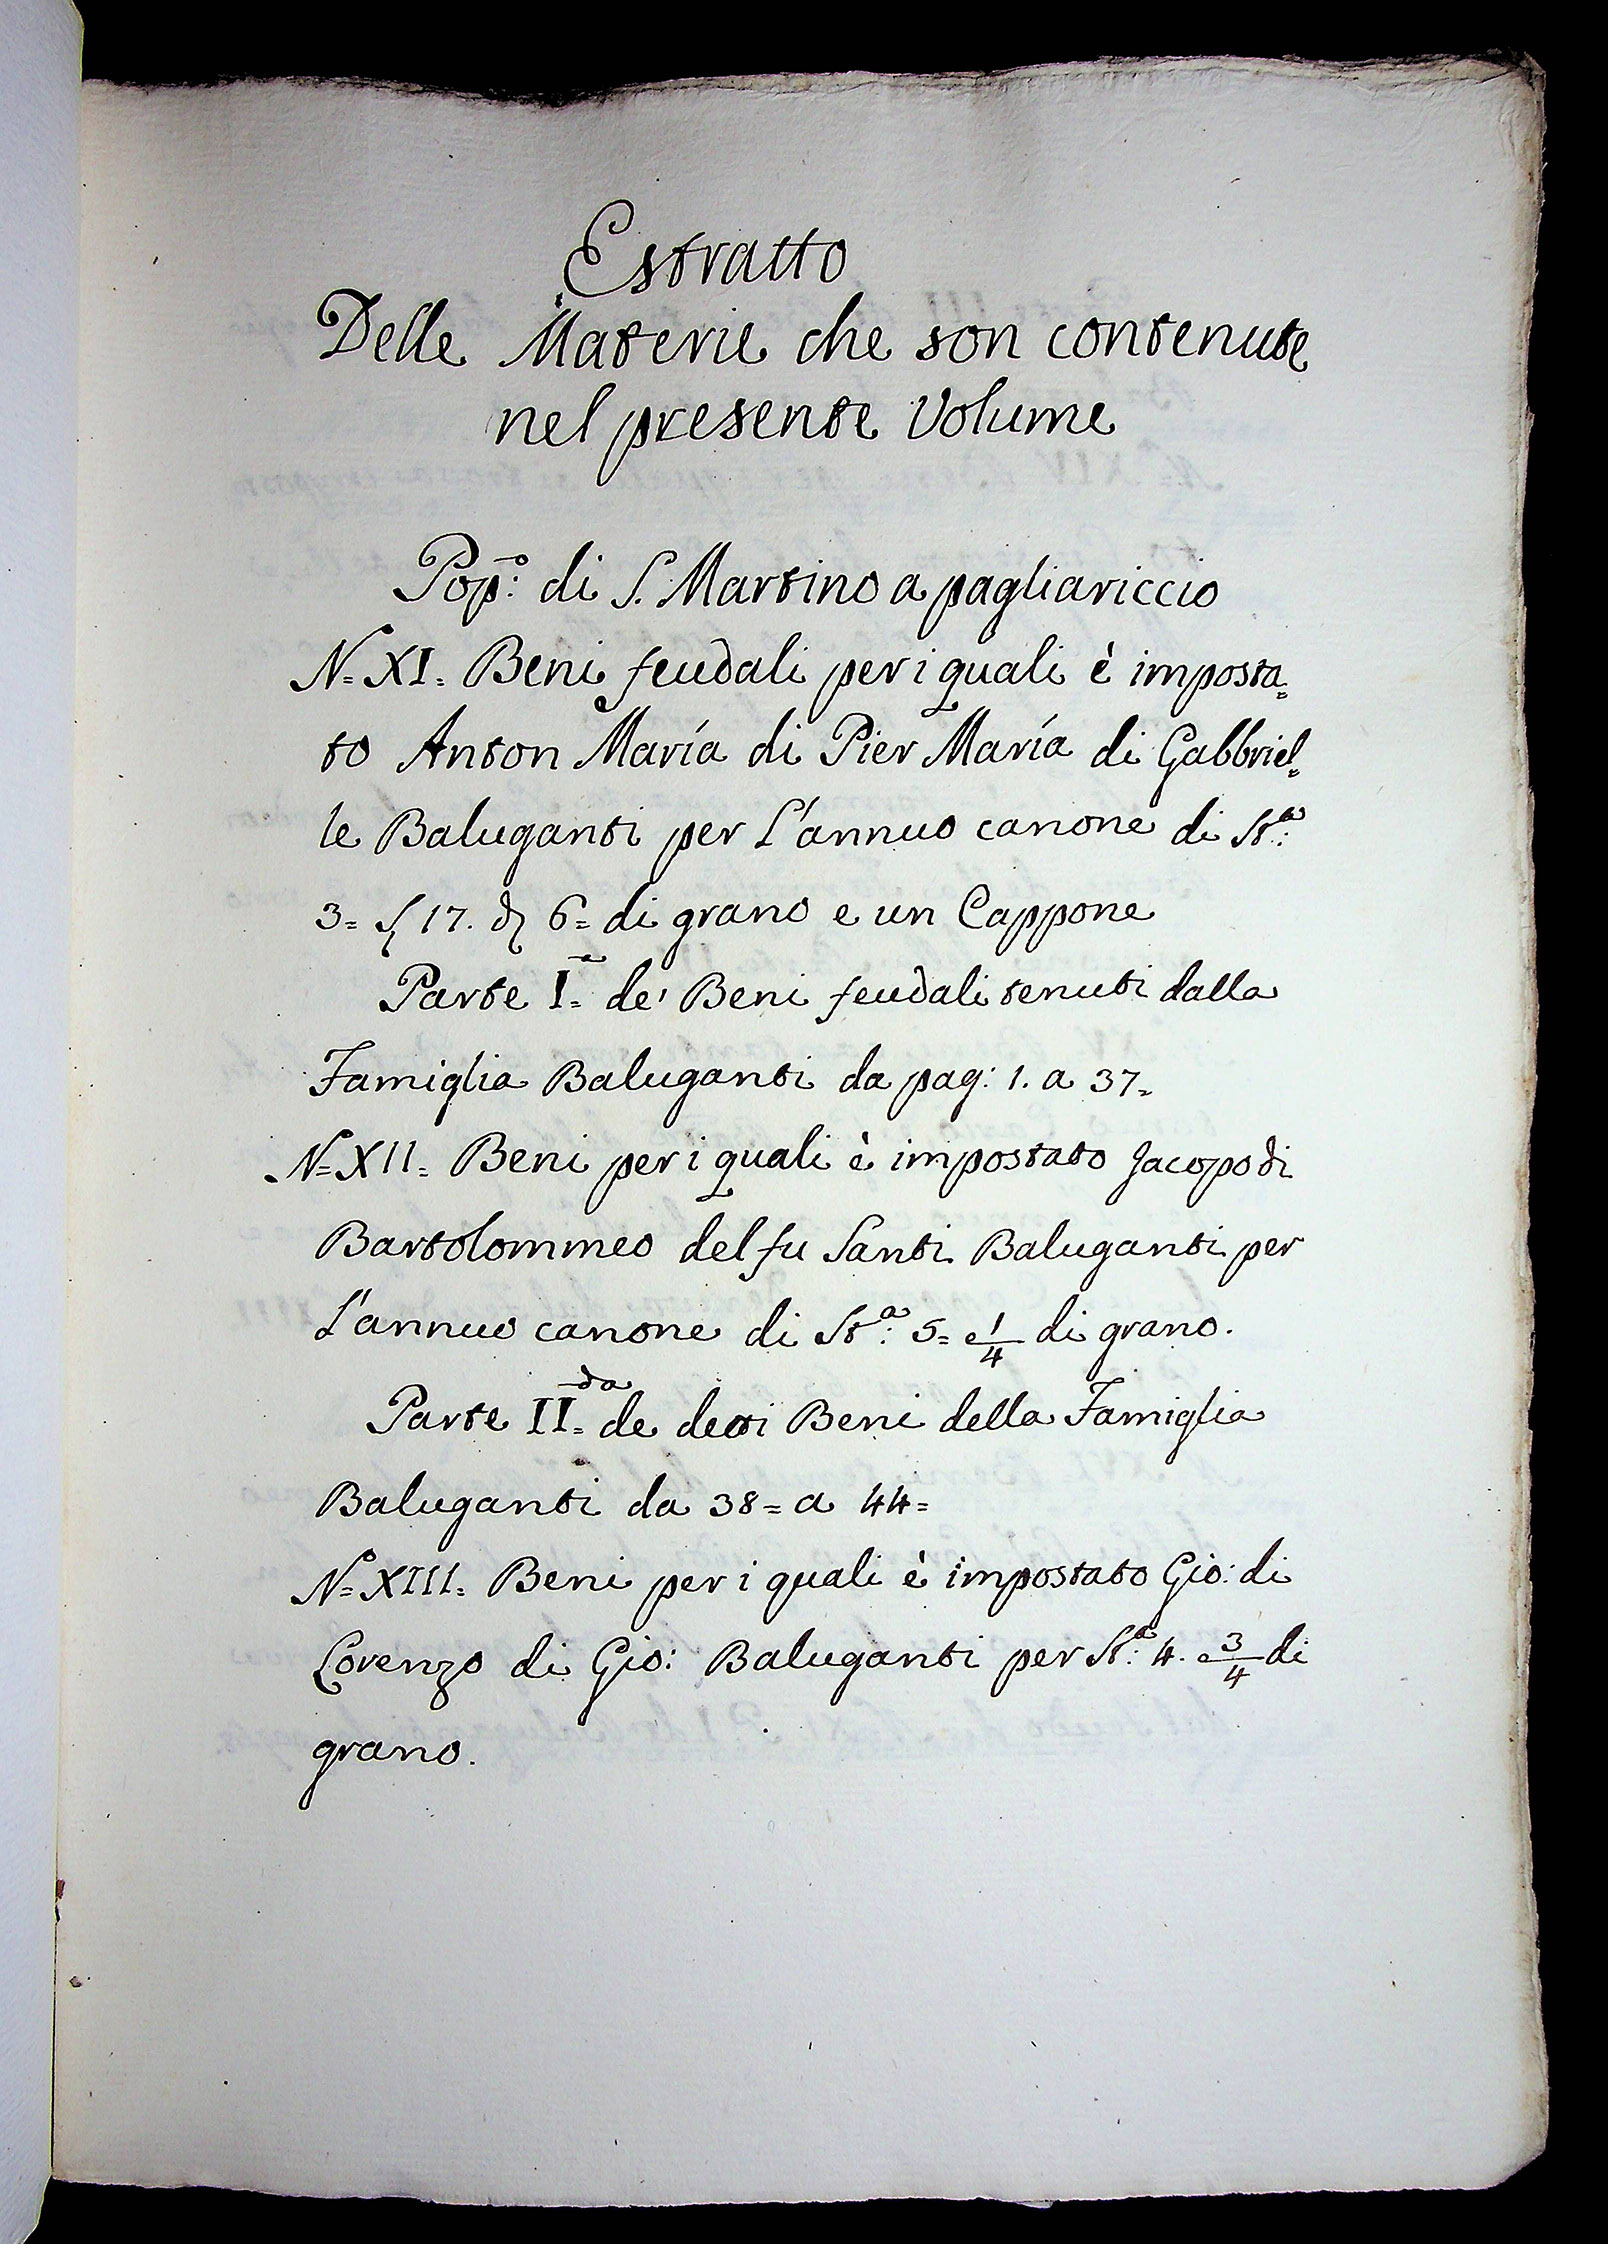 Estratto
Delle Materie che son contenute
nel presente Volume
Pop.º di S. Martino a pagliariccio
N= XI= Beni feudali per i quali è imposta=
to Anton María di Pier María di Gabbriel=
le Baluganti per L'annuo canone di St.ª
3= S 17. d 6= di grano e un Cappone
Parte I.ª de' Beni feudali tenuti dalla
Famiglia Baluganti da pag: 1. a 37=
N= XII= Beni per i quali è impostato Jacopo di
Bartolommeo del fu Santi Baluganti per
L'annuo canone di St.ª 5= e 1/4 di grano.
Parte II.da de detti Beni della Famiglia
Baluganti da 38= a 44=
N= XIII= Beni per i quali è impostato Gio: di
Lorenzo di Gio: Baluganti per St.ª 4. e 3/4 di
grano.